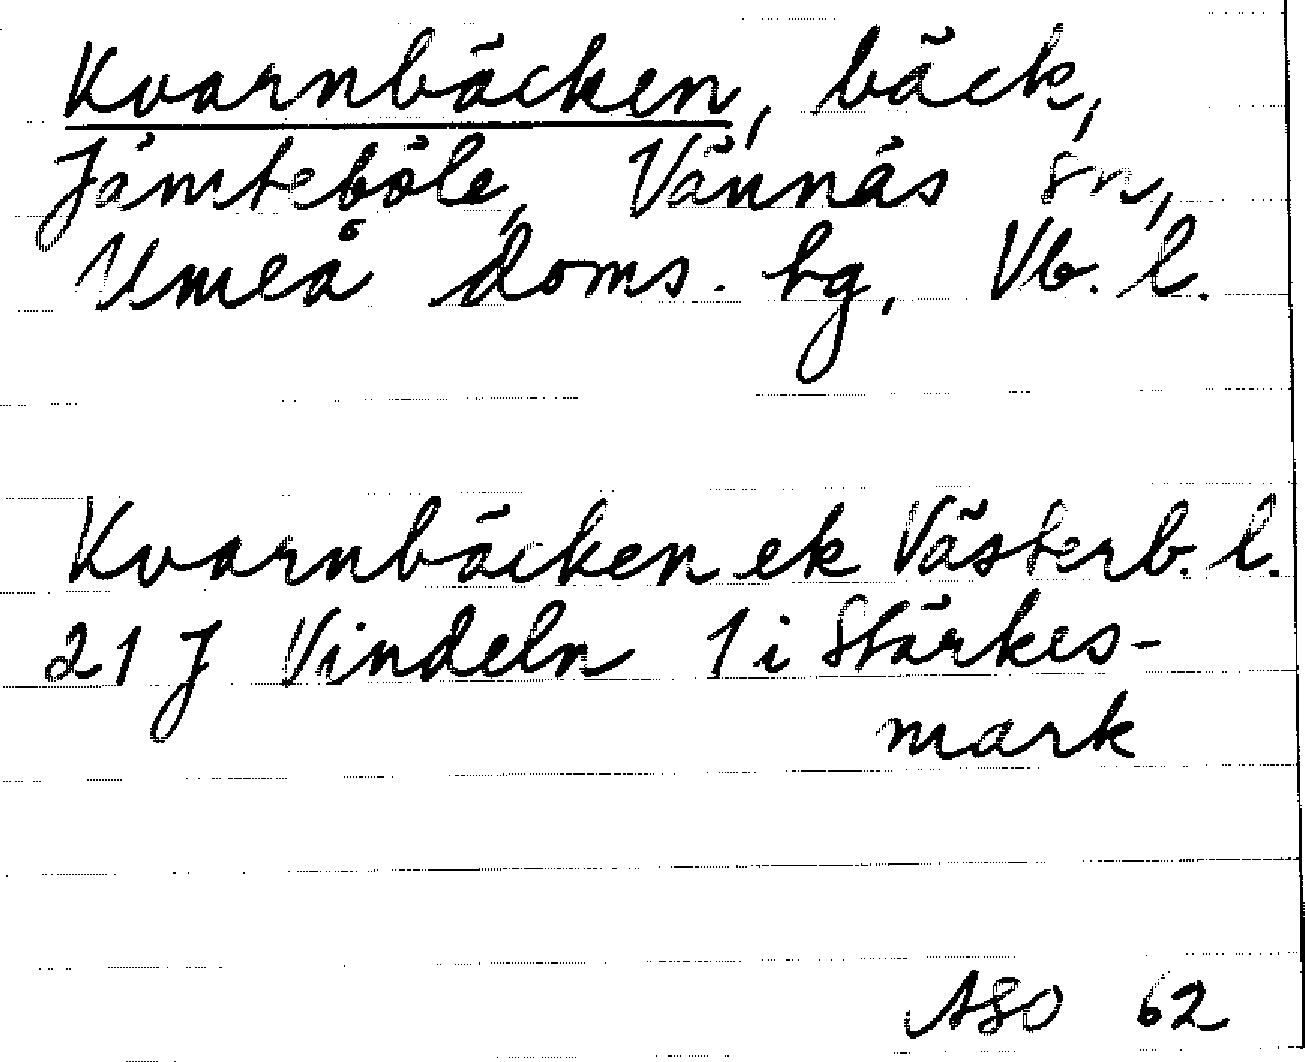 Kvarnbäcken, bäck,
Jämteböle, Vännäs sn,
Umeå doms. tg, Vb. l.
Kvarnbäcken ek Västerb. l.
21 J Vindeln 1 i Stärkes-
mark
ASO 62